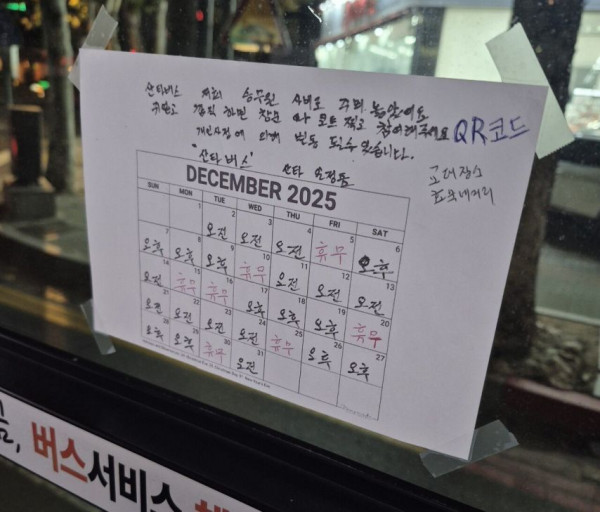 산타버스 저희 승무원 사비로 꾸며 놓았어요
하면 적고 참여해주세요 QR코드
개인사정에 의해 변동 될수 있습니다.
"산타버스" 산타
교대장소
효목네거리
DECEMBER 2025
SUN MON TUE WED THU FRI SAT
1 2 3 4 5 6
오전 오전 오전 휴무 오후
7 8 9 10 11 12 13
오후 오후 오후 휴무 오전 오전 오전
14 15 16 17 18 19 20
오전 휴무 휴무 오후 오후 오후 휴무
21 22 23 24 25 26 27
오전 오전 오전 오전 휴무 오후 오후
28 29 30 31
오후 오후 휴무 오전
버스서비스